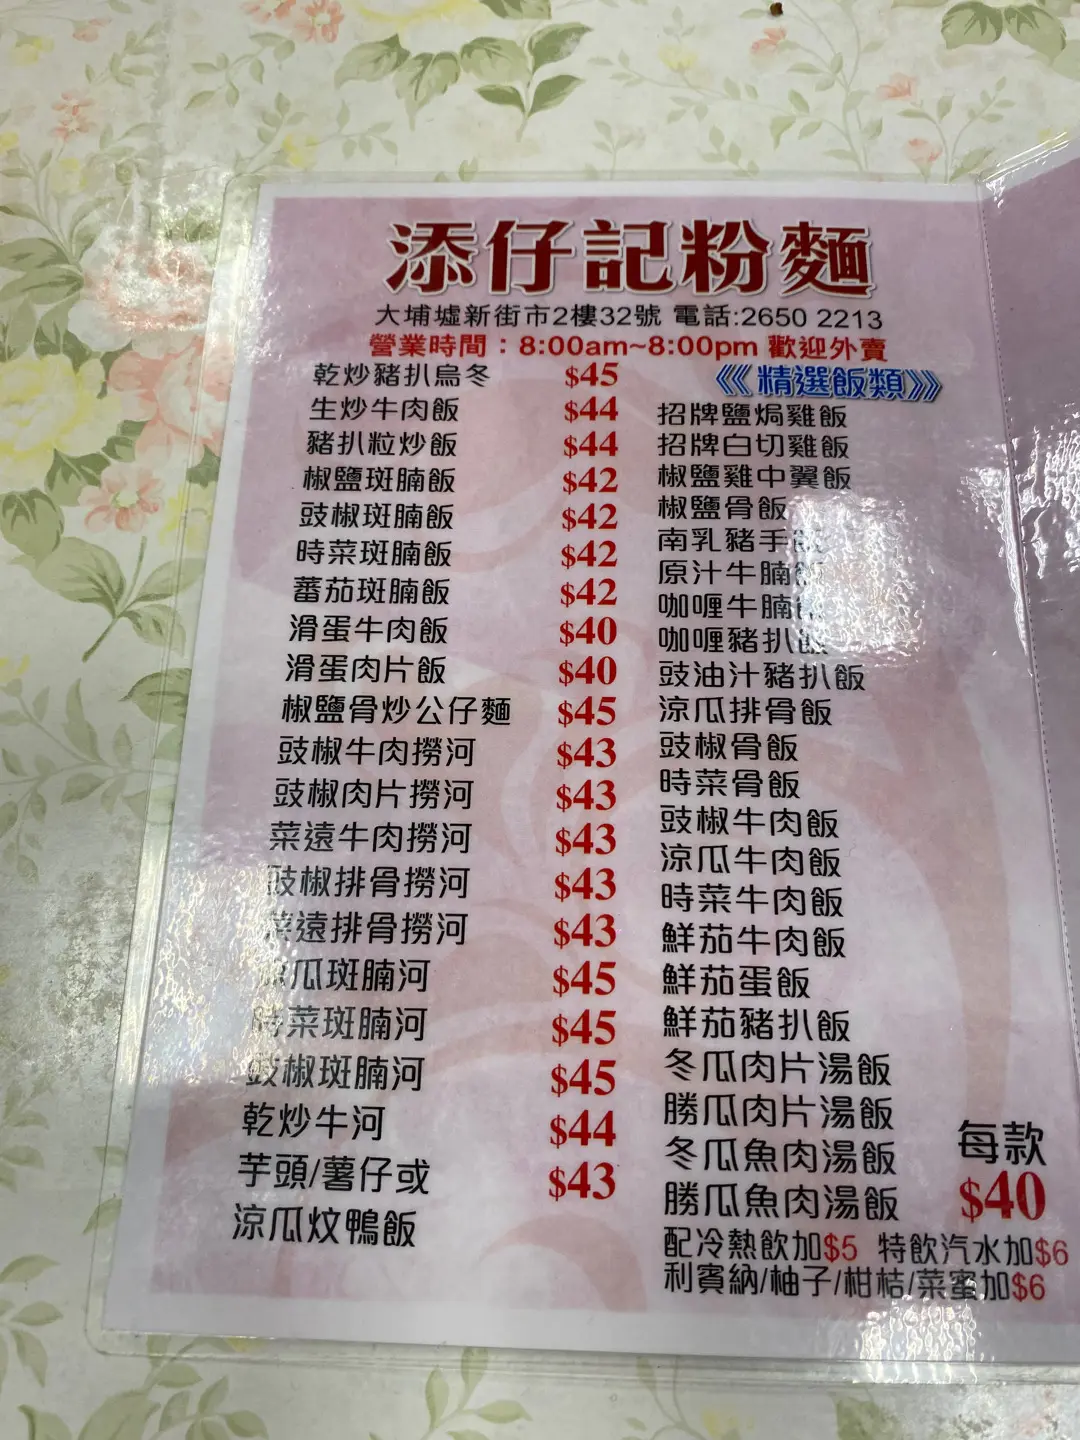 添仔記粉麵
大埔墟新街市2樓32號 電話:2650 2213
營業時間：8:00am~8:00pm 歡迎外賣
乾炒豬扒烏冬 $45
生炒牛肉飯 $44
豬扒粒炒飯 $44
椒鹽斑腩飯 $42
豉椒斑腩飯 $42
時菜斑腩飯 $42
蕃茄斑腩飯 $42
滑蛋牛肉飯 $40
滑蛋肉片飯 $40
椒鹽骨炒公仔麵 $45
豉椒牛肉撈河 $43
豉椒肉片撈河 $43
菜遠牛肉撈河 $43
豉椒排骨撈河 $43
菜遠排骨撈河 $43
瓜斑腩河 $45
時菜斑腩河 $45
豉椒斑腩河 $45
乾炒牛河 $44
芋頭/薯仔或 $43
涼瓜炆鴨飯
《《精選飯類》》
招牌鹽焗雞飯
招牌白切雞飯
椒鹽雞中翼飯
椒鹽骨飯
南乳豬手飯
原汁牛腩
咖喱牛腩
咖喱豬扒飯
豉油汁豬扒飯
涼瓜排骨飯
豉椒骨飯
時菜骨飯
豉椒牛肉飯
涼瓜牛肉飯
時菜牛肉飯
鮮茄牛肉飯
鮮茄蛋飯
鮮茄豬扒飯
冬瓜肉片湯飯
勝瓜肉片湯飯
冬瓜魚肉湯飯
勝瓜魚肉湯飯
每款
$40
配冷熱飲加$5 特飲汽水加$6
利賓納/柚子/柑桔/菜蜜加$6